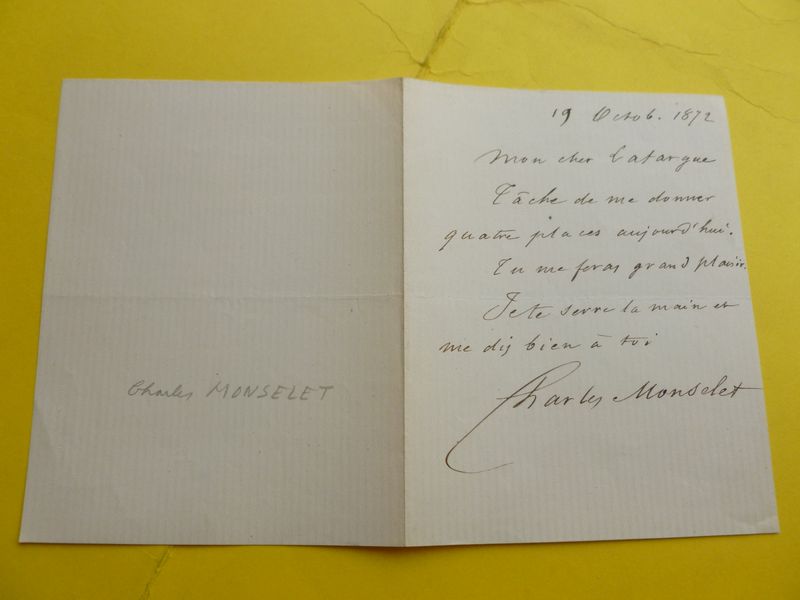 Charles MONSELET
19 Octob. 1872
Mon cher Latargue
Tâche de me donner
quatre places aujourd'hui.
Tu me feras grand plaisir.
Je te serre la main et
me dis bien à toi
Charles Monselet